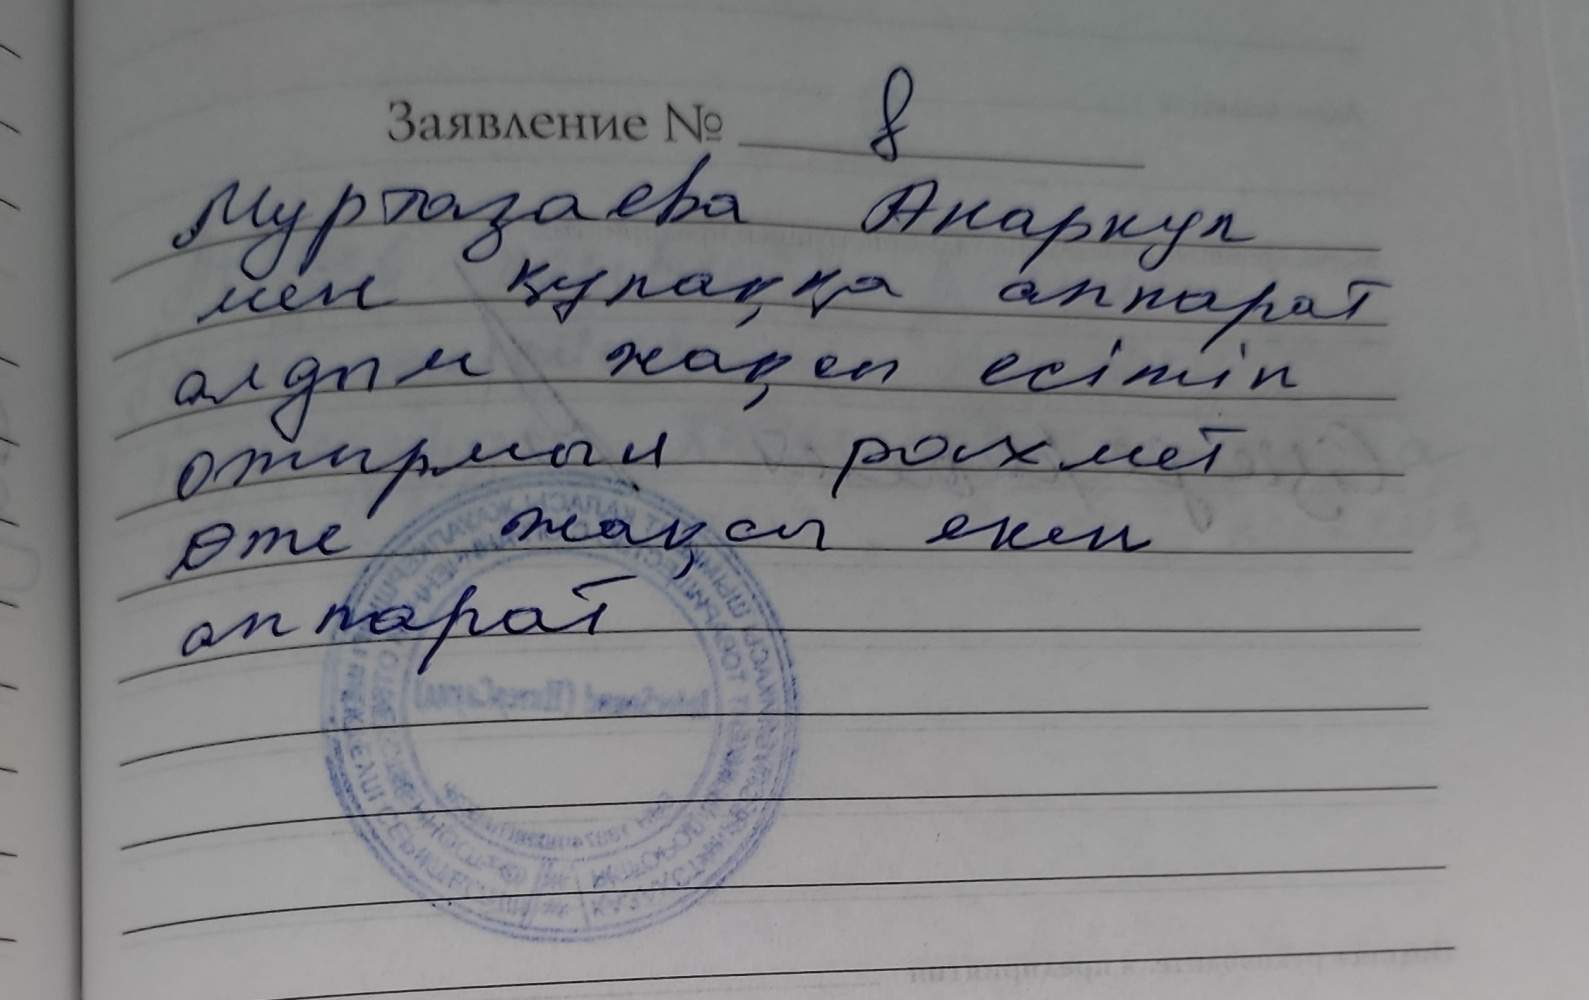 Заявление № 8
Муртазаева Анаркул
мен құлаққа аппарат
алдым жақсы есітіп
отырмын рахмет
Өте жақсы екен
аппарат